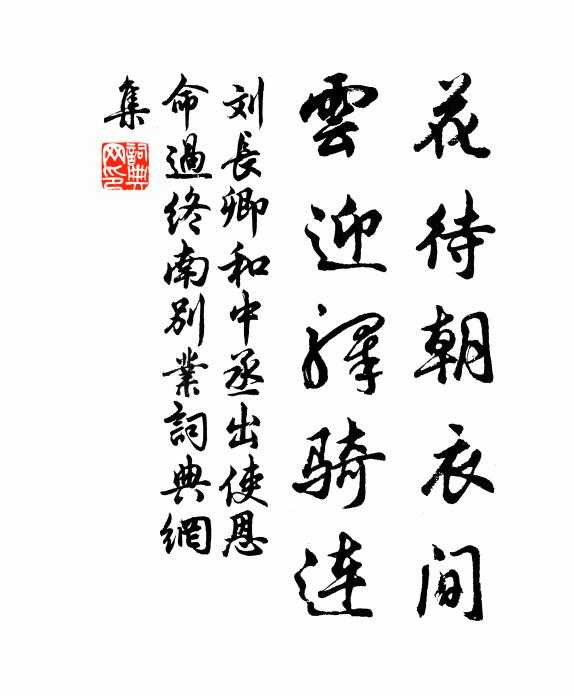 花待朝衣间
雲迎驛骑連
刘長卿和中丞出使恩
命過终南别業詞典網
集
詞典网印